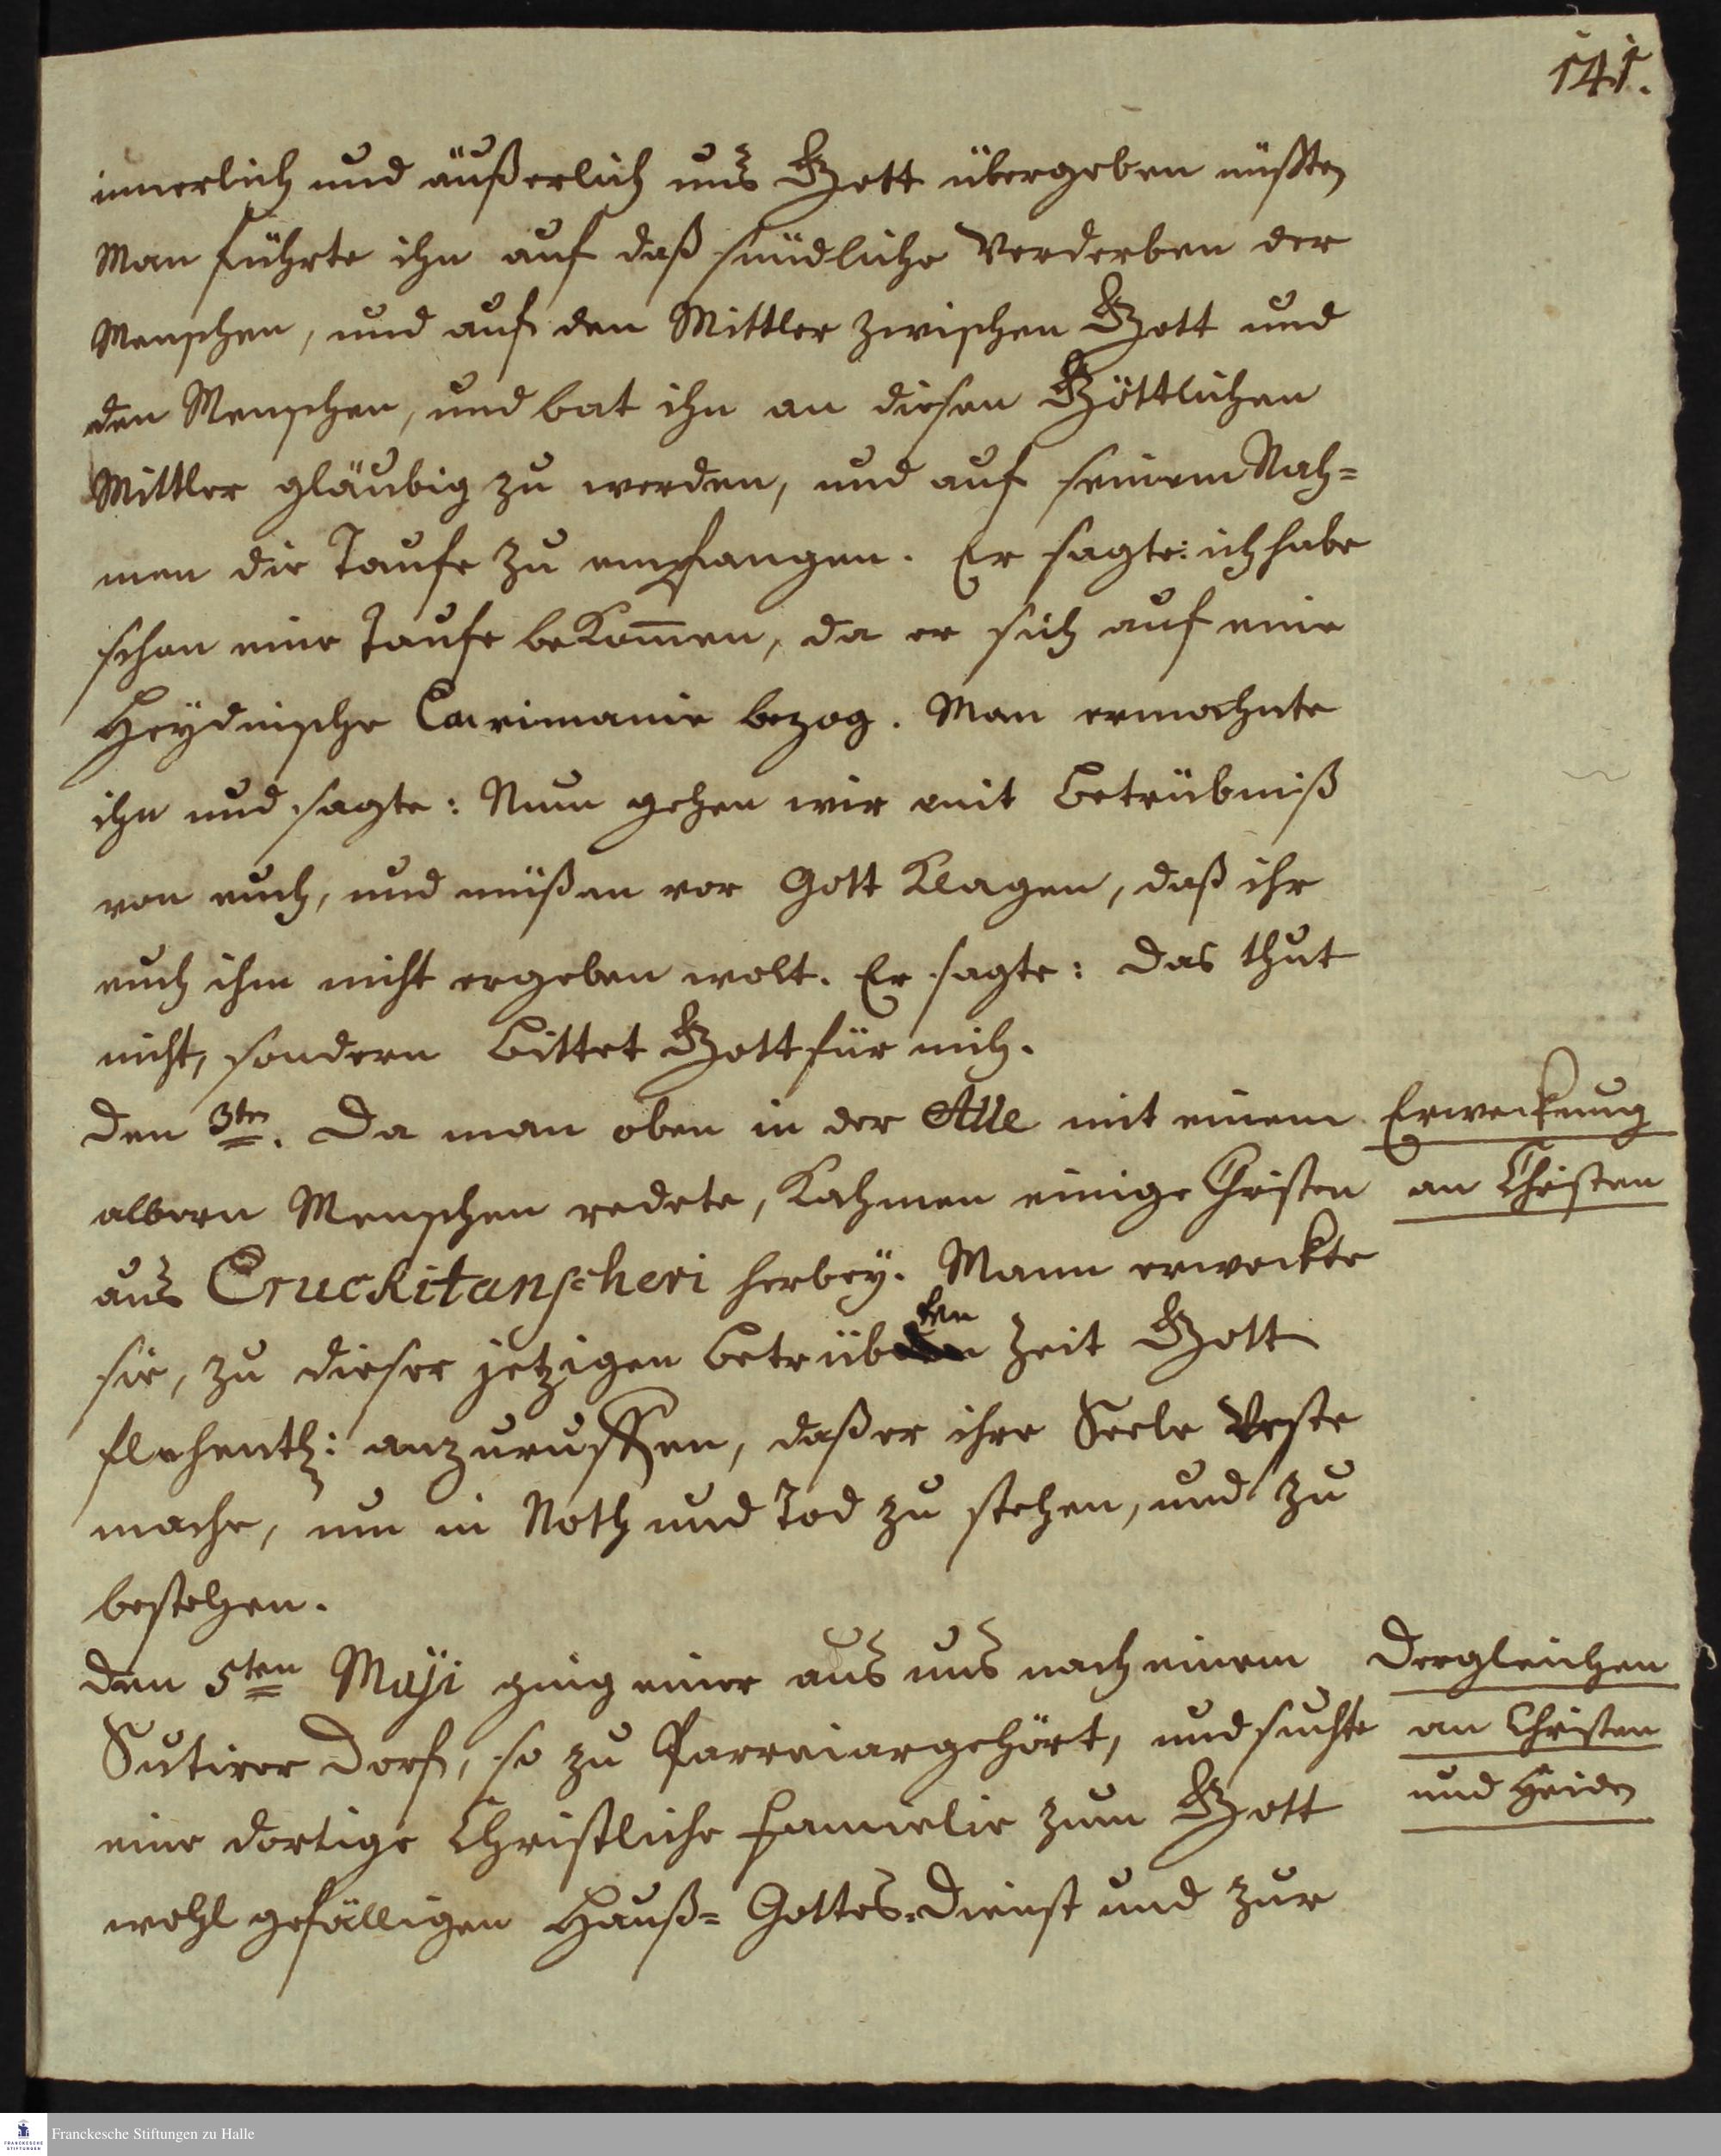 141.
innerlich und äußerlich uns Gott übergeben müsten
Man führte ihn auf daß sündliche Verderben der
Menschen, und auf den Mittler zwischen Gott und
den Menschen, und bat ihn an diesen Göttlichen
Mittler gläubig zu werden, und auf seinem Nah=
men die Taufe zu empfangen. Er sagte: ich habe
schon eine Taufe bekom̄en, da er sich auf eine
Heÿdnische Cairimanie bezog. Man ermahnte
ihn und sagte: Nun gehen wir mit Betrübniß
von euch, und müßen vor Gott Klagen, daß ihr
euch ihm nicht ergeben wolt. Er sagte: Das thut
nicht, sondern Bittet Gott für mich.
Den 3ten. Da man oben in der Alle mit einem
Erweckung
albern Menschen redete, Kahmen einige Christen
an Christen
aus Cruckitanscheri herbeÿ. Mann erweckte
sie, zu dieser jetzigen betrübten Zeit Gott
flehentl: anzuruffen, daß er ihre Seele Veste
mache, um in Noth und Tod zu stehen, und zu
bestehen.
Den 5ten Maji ging einer aus uns nach einem
Dergleichen
Sutirer Dorf, so zu Parreiar gehört, und suchte
an Christen
eine dortige Christliche Familie zum Gott
und Heiden
wohl gefälligen Hauß= Gottes=Dienst und zur
Franckesche Stiftungen zu Halle